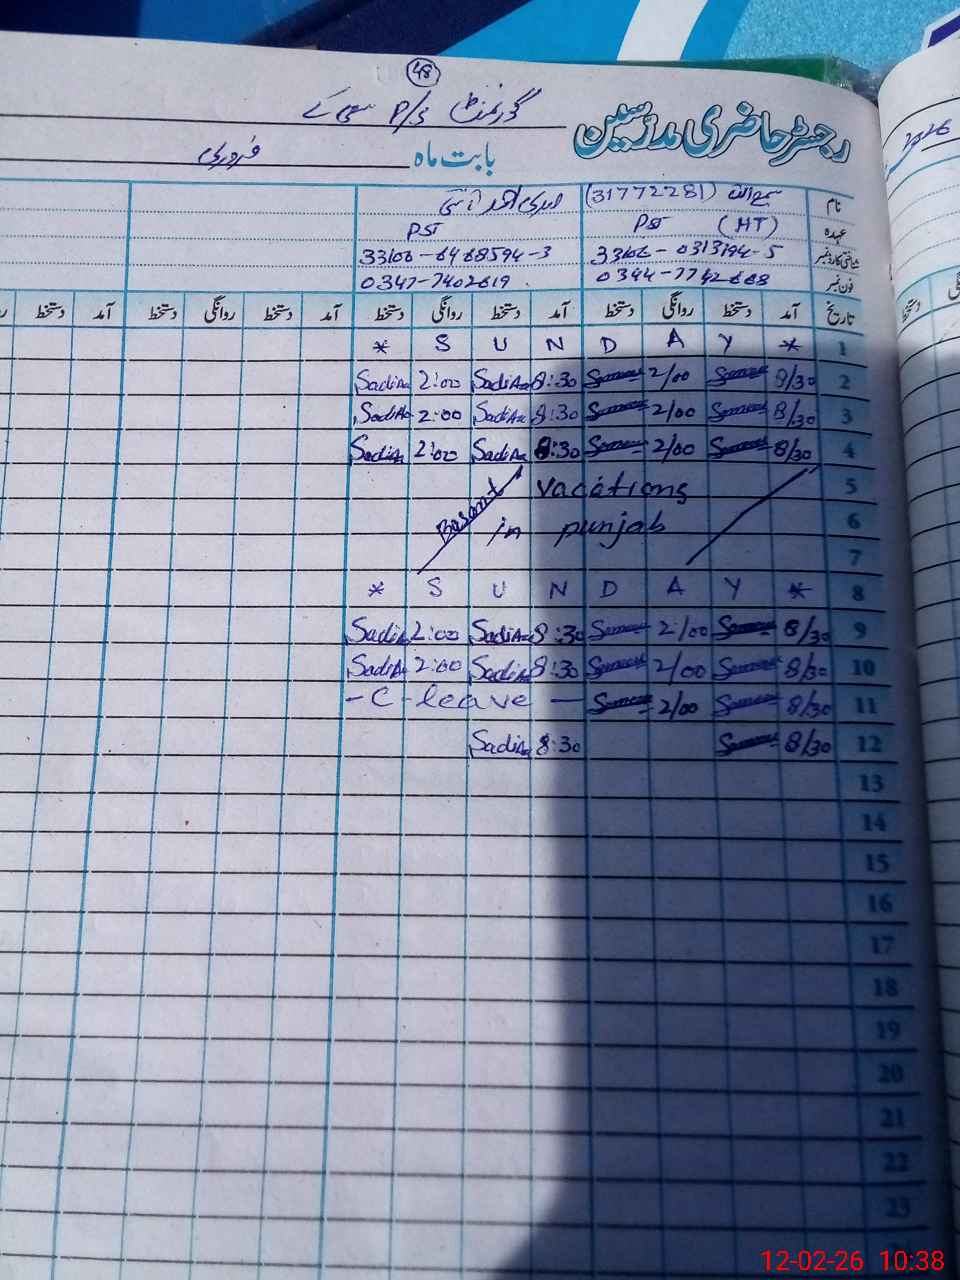 48
گورنمنٹ P/S
رجسٹر حاضری مدرسین
2026
بابت ماہ فروری
نام (31772281)
عہدہ PST (HT) PST
شناختی کارڈ نمبر 33106-0313194-5 33106-6468594-3
فون نمبر 0344-7742668 0347-7402619
تاریخ آمد دستخط روانگی دستخط آمد دستخط روانگی دستخط آمد دستخط روانگی دستخط آمد دستخط
* S U N D A Y * 1
Sadia 2:00 Sadia 8:30 2/00 8/30 2
Sadia 2:00 Sadia 8:30 2/00 8/30 3
Sadia 2:00 Sadia 8:30 2/00 8/30 4
Basant vacations 5
in punjab 6
7
* S U N D A Y * 8
Sadia 2:00 Sadia 8:30 2/00 8/30 9
Sadia 2:00 Sadia 8:30 2/00 8/30 10
- C - leave - 2/00 8/30 11
Sadia 8:30 8/30 12
13
14
15
16
17
18
19
20
21
22
23
12-02-26 10:38